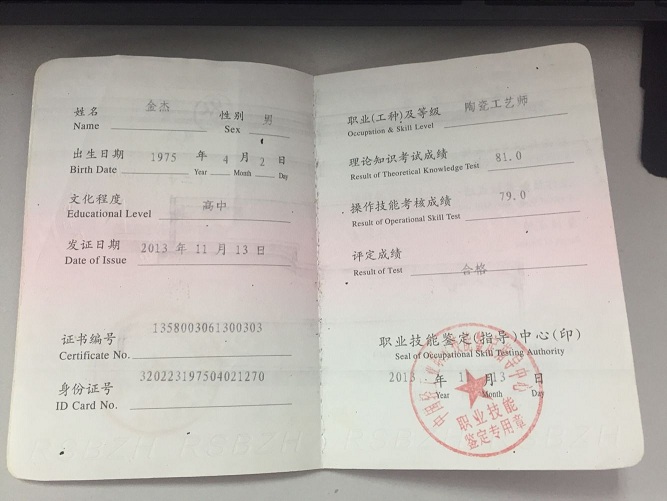 姓名 金杰 性别 男
Name Sex
出生日期 1975 年 4 月 2 日
Birth Date Year Month Day
文化程度 高中
Educational Level
发证日期 2013 年 11 月 13 日
Date of Issue
证书编号 1358003061300303
Certificate No.
身份证号 320223197504021270
ID Card No.
职业(工种)及等级 陶瓷工艺师
Occupation & Skill Level
理论知识考试成绩 81.0
Result of Theoretical Knowledge Test
操作技能考核成绩 79.0
Result of Operational Skill Test
评定成绩
Result of Test 合格
职业技能鉴定(指导)中心(印)
Seal of Occupational Skill Testing Authority
2013 年 11 月 13 日
Year Month Day
职业技能
鉴定专用章